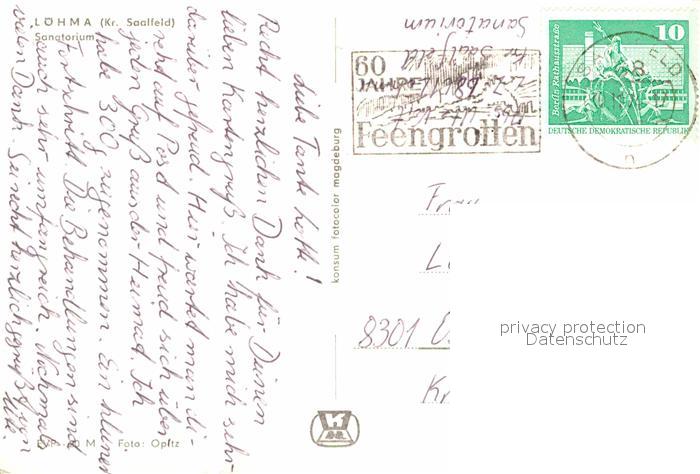 "LÖHMA (Kr. Saalfeld)
Sanatorium
Liebe Tante Lotti!
Recht herzlichen Dank für Deinen
lieben Kartengruß. Ich habe mich sehr
darüber gefreut. Hier wartet man di-
rekt auf Post und freut sich über
jeden Gruß aus der Heimat. Ich
habe 300 g zugenommen. Ein kleiner
Fortschritt. Die Behandlungen sind
auch sehr umfangreich. Nochmals
vielen Dank. Sei recht herzlich gegrüßt von
Foto: Opitz
konsum fotocolor magdeburg
Sanatorium
Kr. Saalfeld
Löhma
60
Feengrotten
10
Berlin, Rathausstraße
DEUTSCHE DEMOKRATISCHE REPUBLIK
8301
Kr
privacy protection
Datenschutz